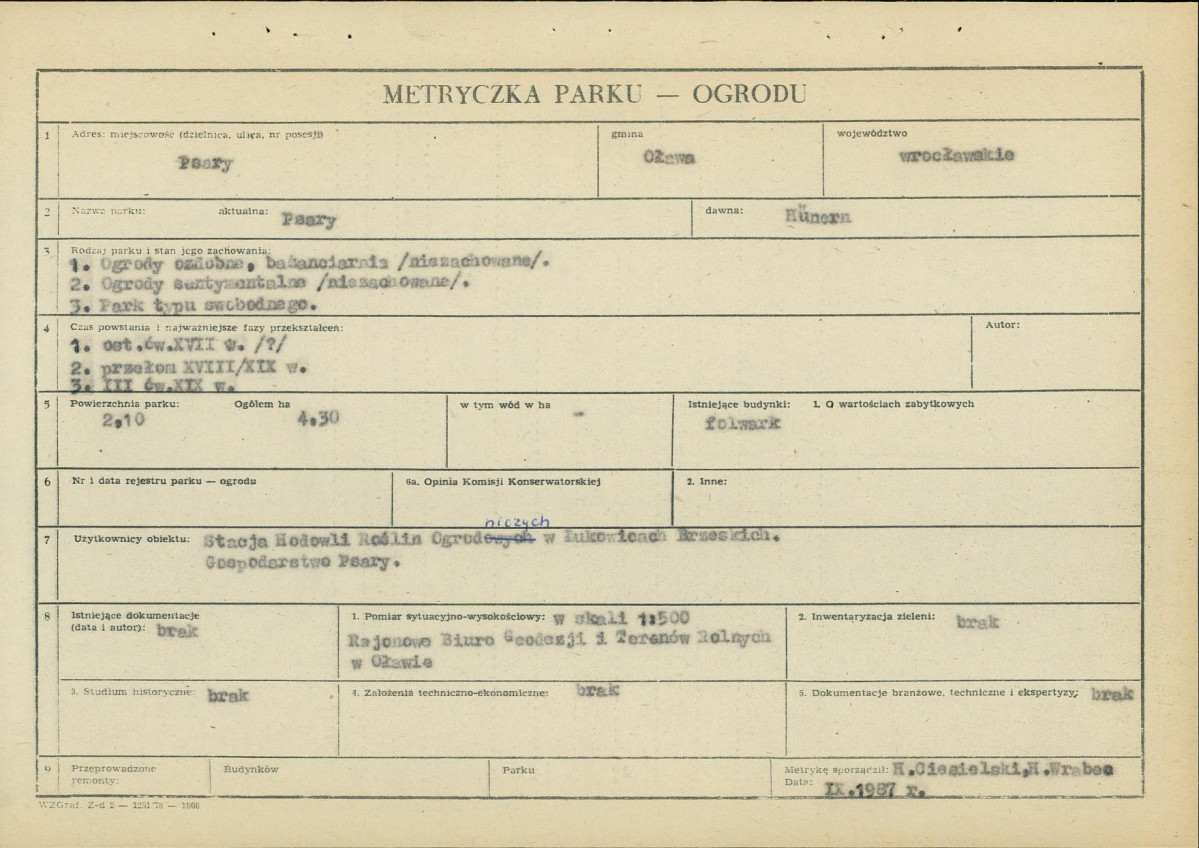 METRYCZKA PARKU — OGRODU
1 Adres: miejscowość (dzielnica, ulica, nr posesji) gmina województwo
Psary Oława wrocławskie
2 Nazwa parku: aktualna: Psary dawna: Hünern
3 Rodzaj parku i stan jego zachowania:
1. Ogrody ozdobne, bażanciarnia /niezachowane/.
2. Ogrody sentymentalne /niezachowane/.
3. Park typu swobodnego.
4 Czas powstania i najważniejsze fazy przekształceń: Autor:
1. ost.ćw.XVII w. /?/
2. przełom XVIII/XIX w.
3. III ćw.XIX w.
5 Powierzchnia parku: Ogółem ha w tym wód w ha Istniejące budynki: 1. O wartościach zabytkowych
2,10 4,30 – folwark
6 Nr i data rejestru parku — ogrodu 6a. Opinia Komisji Konserwatorskiej 2. Inne:
niczych
7 Użytkownicy obiektu: Stacja Hodowli Roślin Ogrodowych w Łukowicach Brzeskich.
Gospodarstwo Psary.
8 Istniejące dokumentacje
(data i autor): brak
1. Pomiar sytuacyjno-wysokościowy: w skali 1:500
Rejonowe Biuro Geodezji i Terenów Rolnych
w Oławie
2. Inwentaryzacja zieleni: brak
3. Studium historyczne: brak
4. Założenia techniczno-ekonomiczne: brak
5. Dokumentacje branżowe, techniczne i ekspertyzy: brak
9 Przeprowadzone
remonty:
Budynków
Parku
Metrykę sporządził: H.Ciesielski,H.Wrabec
Data: IX.1987 r.
WZGraf. Z-d 2 — 1251/78 — 1000